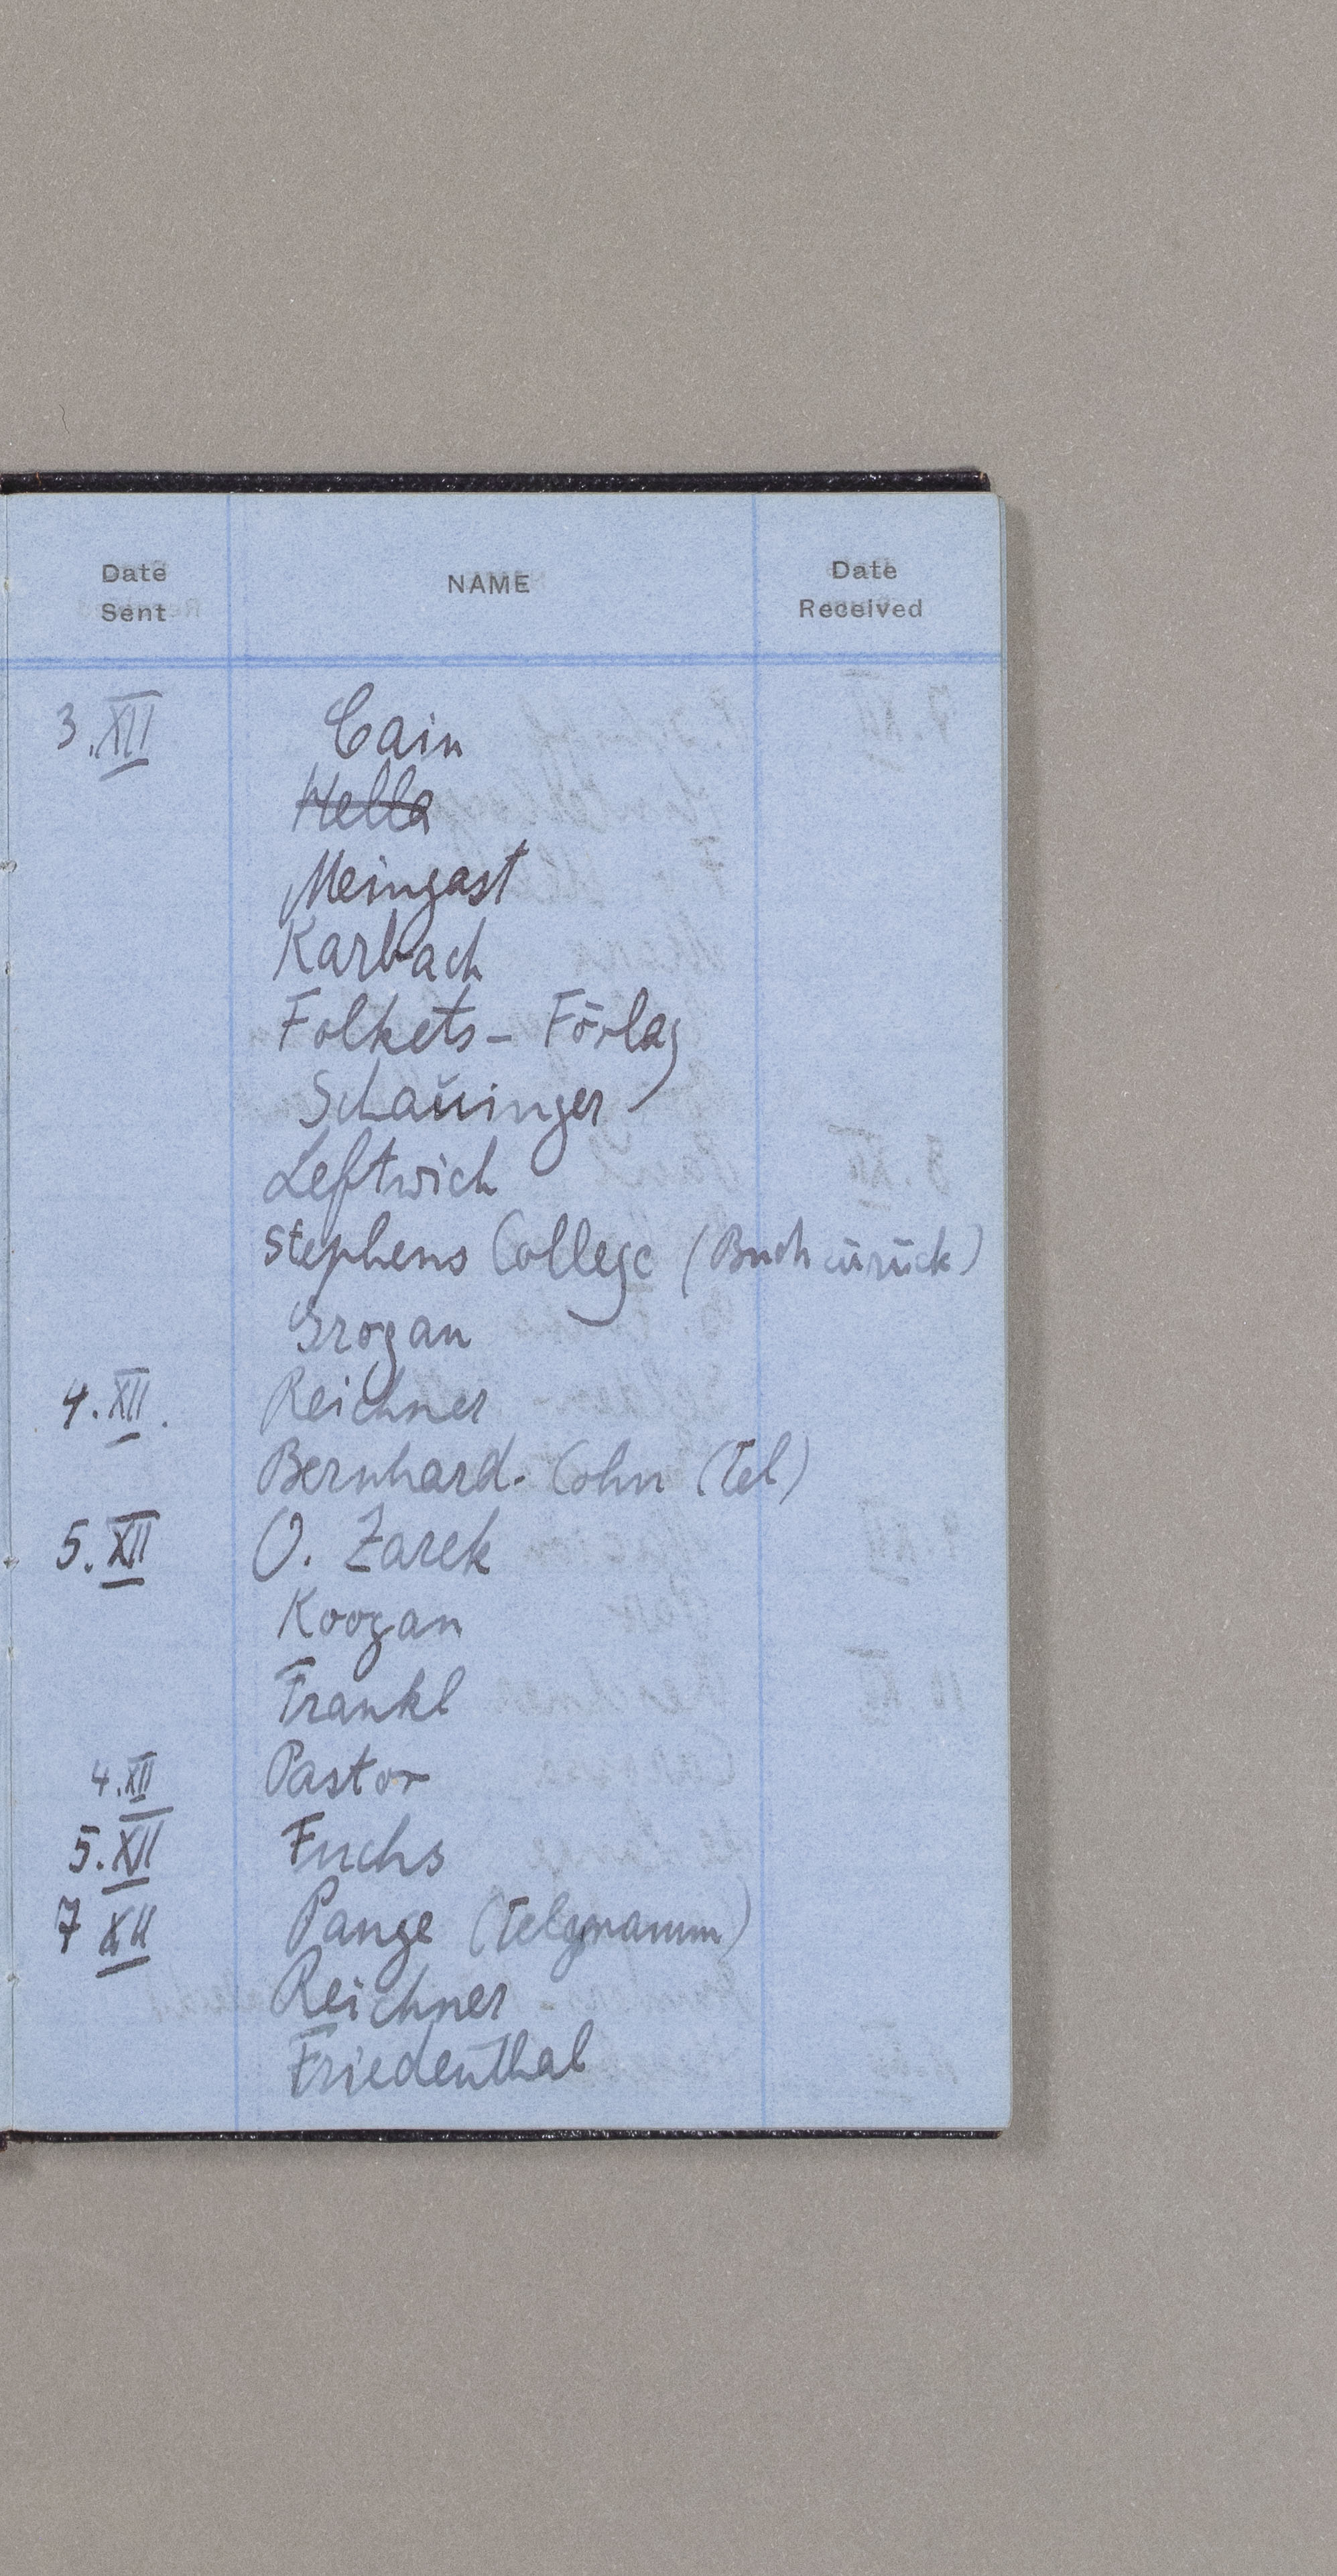 Date Sent NAME Date Received
3.XII Cain
Hella
Meingast
Karbach
Folkets - Förlag
Schauinger
Leftwich
Stephens College (Buch zurück)
Grogan
4.XII. Reichner
Bernhard-Cohn (Tel)
5.XII O. Zarek
Koogan
Frankl
4.XII Pastor
5.XII Fuchs
7 XII Pange (Telegramm)
Reichner
Friedenthal